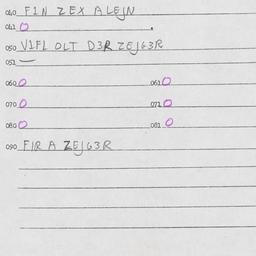 040 FIN ZEX ALEJN
041
050 VIFL OLT D3R ZEJG3R
051 —
060 061
070 071
080 081
090 FIR A ZEJG3R